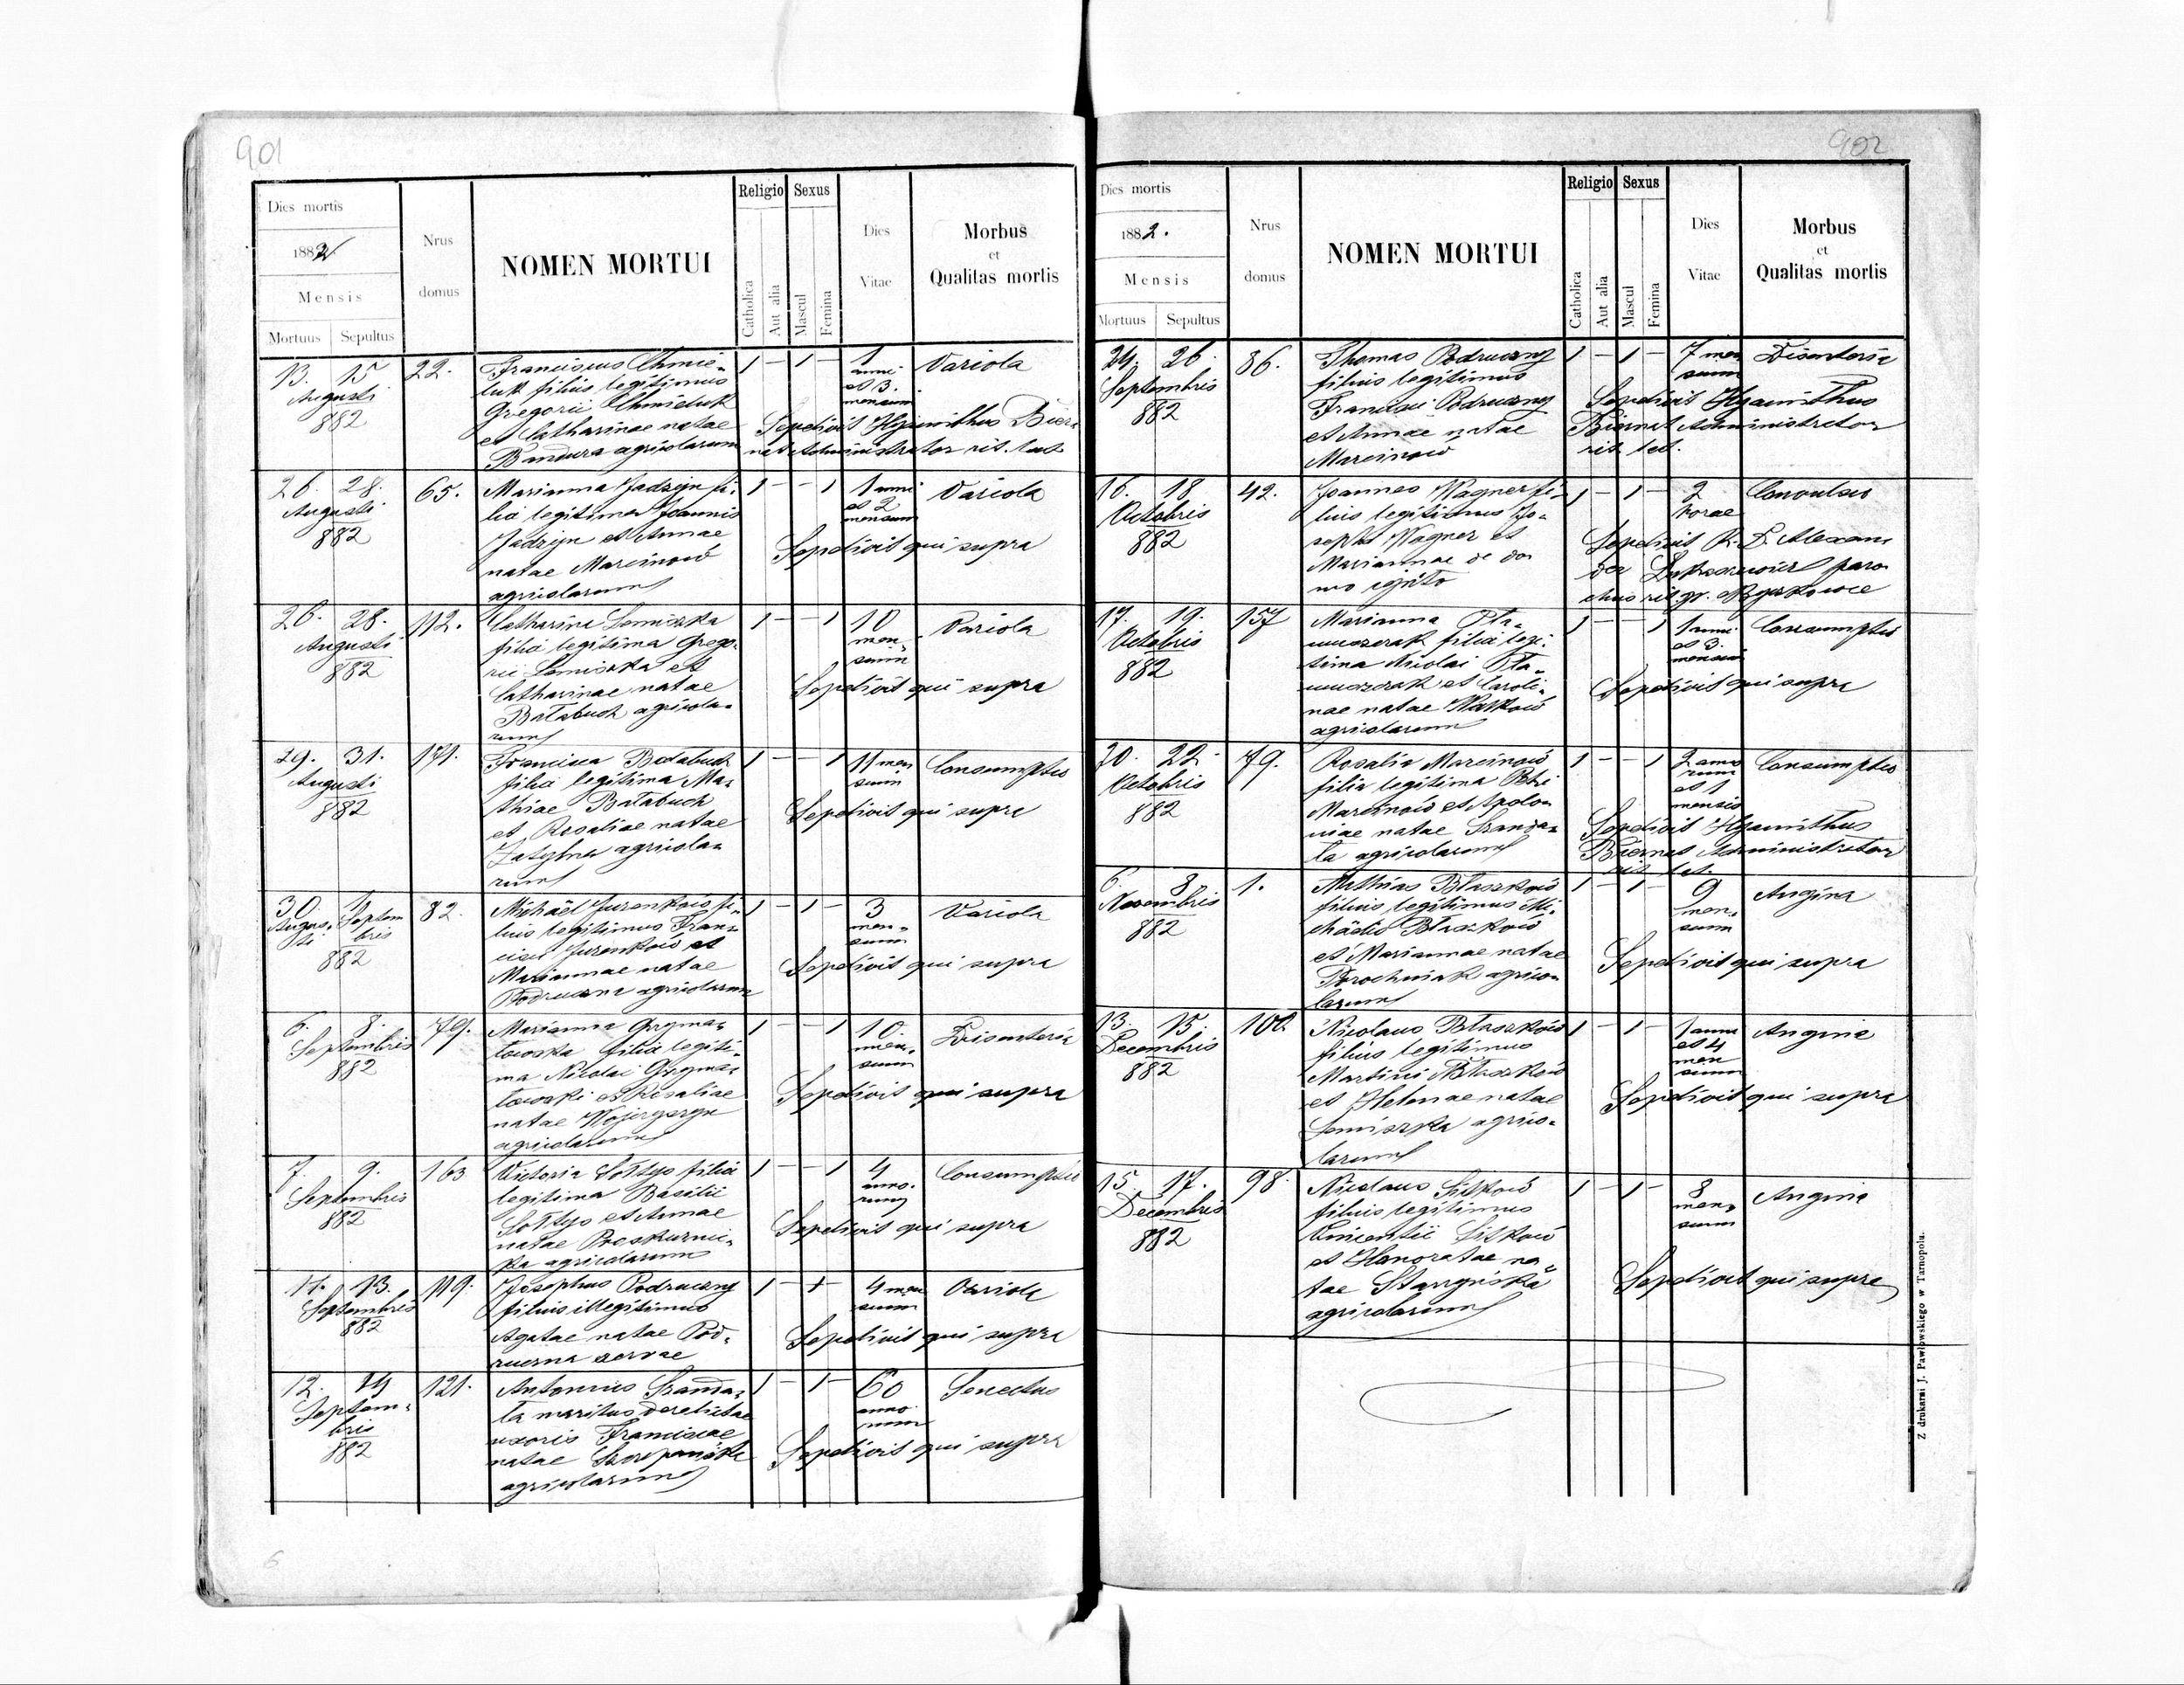 901
Dies mortis
1882
Mensis
Mortuus Sepultus
Nrus
domus
NOMEN MORTUI
Religio
Catholica
Aut alia
Sexus
Mascul
Femina
Dies
Vitae
Morbus
et
Qualitas mortis
13. 15
Augusti
882
22.
Franciscus Chmie-
luk filius legitimus
Gregorii Chmieluk
et Catharinae natae
Bandura agricolarum
1 — 1 —
1
anni
et 3.
mensium
Variola
Sepelivit Hyacinthus Bier
nat Administrator rit. lat.
26. 28.
Augusti
882
65.
Marianna Jadzyn fi-
lia legitima Joannis
Jadzyn et Annae
natae Marcinow
agricolarum
1 — — 1
1 anni
et 2
mensium
Variola
Sepelivit qui supra
26. 28.
Augusti
882
112.
Catharina Semiszka
filia legitima Grego-
rii Semiszka et
Catharinae natae
Bałabuch agricola-
rum
1 — — 1
10
men-
sium
Variola
Sepelivit qui supra
29. 31.
Augusti
882
171.
Francisca Bałabuch
filia legitima Ma-
thiae Bałabuch
et Rosaliae natae
agricola-
rum
1 — — 1
11 men
sium
Consumptio
Sepelivit qui supra
30 1
Augus- Septem
ti bris
882
82.
Michaël Jurenkow fi-
lius legitimus Fran-
cisci Jurenkow et
Mariannae natae
Podruczna agricolarum
1 — 1 —
3
men-
sium
Variola
Sepelivit qui supra
6. 8.
Septembris
882
79.
Marianna Grzyma-
łowska filia legiti-
ma Nicolai Grzyma-
łowski et Rosaliae
natae
agricolarum
1 — — 1
10.
men-
sium
Disenteria
Sepelivit qui supra
7. 9.
Septembris
882
163
Victoria Sołtys filia
legitima Basilii
Sołtys et Annae
natae Proskurnic-
ka agricolarum
1 — — 1
4
anno-
rum
Consumptio
Sepelivit qui supra
11. 13.
Septembris
882
119.
Josephus Podruczny
filius illegitimus
Agatae natae Pod-
ruczna servae
1 — 1 —
4 men
sium
Variola
Sepelivit qui supra
12. 14
Septem-
bris
882
121.
Antonius Szanda-
ła maritus derelictae
uxoris Franciscae
natae Szczepańska
agricolarum
1 — 1 —
60
anno
rum
Senectus
Sepelivit qui supra
6
902
Dies mortis
1882.
Mensis
Mortuus Sepultus
Nrus
domus
NOMEN MORTUI
Religio
Catholica
Aut alia
Sexus
Mascul
Femina
Dies
Vitae
Morbus
et
Qualitas mortis
24. 26.
Septembris
882
86.
Thomas Podruczny
filius legitimus
Francisci Podruczny
et Annae natae
Marcinow
1 — 1 —
7 men
sium
Disenteria
Sepelivit Hyacinthus
Biernat Administrator
rit. lat.
16. 18
Octobris
882
42.
Joannes Wagner fi-
lius legitimus Jo-
sephi Wagner et
Mariannae de do-
mo
1 — 1 —
2
horae
Convulsio
Sepelivit R. D. Alexan
der paro
chus rit. gr.
17. 19.
Octobris
882
157
Marianna
filia legi-
tima Nicolai
et Caroli-
nae natae
agricolarum
1 — — 1
1 anni
et 3.
mensium
Consumptio
Sepelivit qui supra
20. 22.
Octobris
882
79.
Rosalia Marcinow
filia legitima Petri
Marcinow et Apolo-
niae natae Szanda-
ła agricolarum
1 — — 1
2 anno
rum
et 1
mensis
Consumptio
Sepelivit Hyacinthus
Biernat Administrator
rit. lat.
6. 8
Novembris
882
1.
Mathias Błaszkow
filius legitimus Mi-
chaëlis Błaszkow
et Mariannae natae
Dorochniak agrico-
larum
1 — 1 —
9
men-
sium
Angina
Sepelivit qui supra
13. 15.
Decembris
882
100.
Nicolaus Błaszkow
filius legitimus
Martini Błaszkow
et Helenae natae
Semiszka agrico-
larum
1 — 1 —
1 anni
et 4
men
sium
Angina
Sepelivit qui supra
15. 17.
Decembris
882
98.
Nicolaus Sitkow
filius legitimus
Vincentii Sitkow
et Honoratae na-
tae
agricolarum
1 — 1 —
8
men-
sium
Angina
Sepelivit qui supra
Z drukarni J. Pawłowskiego w Tarnopolu.